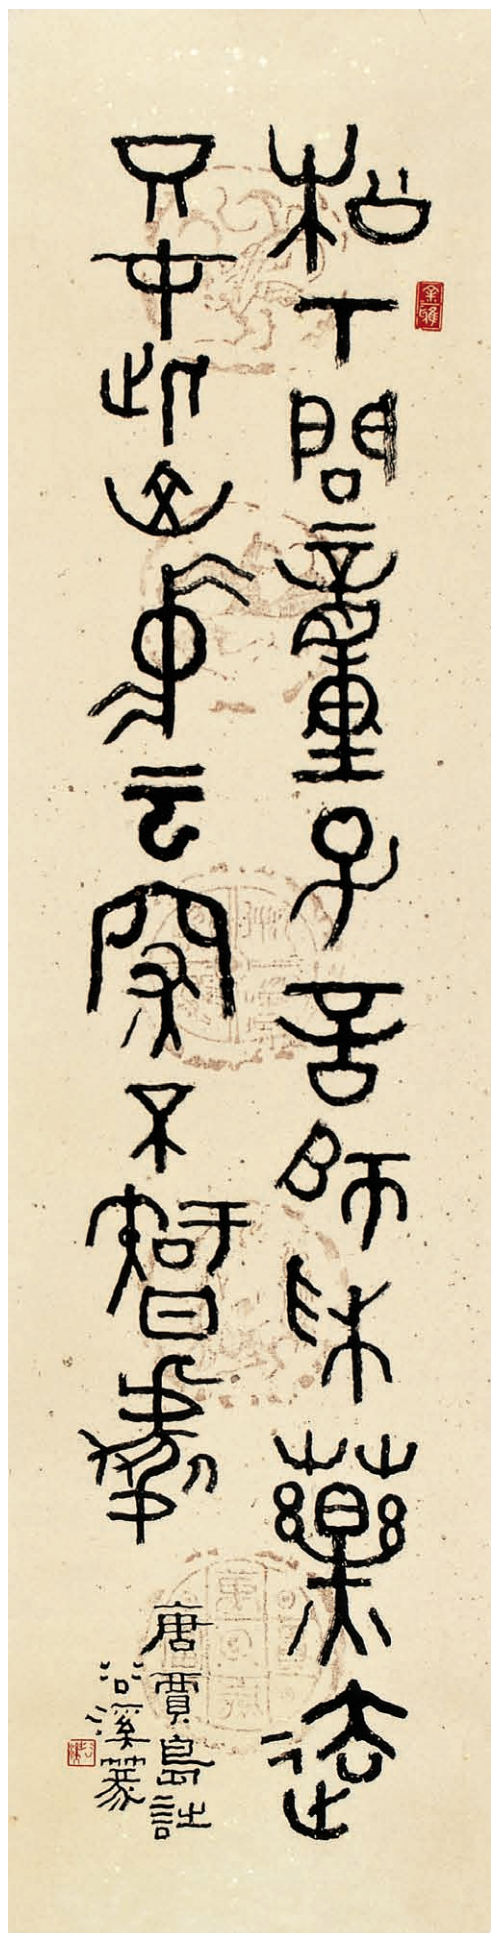 松下問童子言師采藥去
只在此山中云深不智處
唐賈島詩
沿溪篆